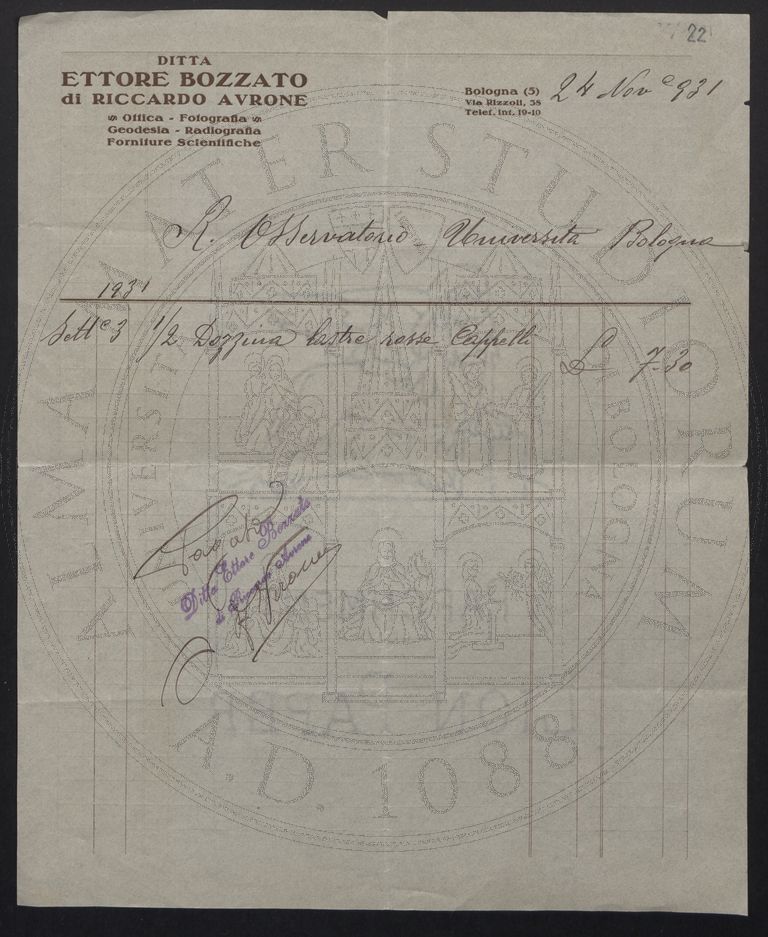 22
DITTA
ETTORE BOZZATO
di RICCARDO AVRONE
Ottica - Fotografia
Geodesia - Radiografia
Forniture Scientifiche
Bologna (5) 24 Nov e 931
Via Rizzoli, 38
Telef. int. 19-10
R. Osservatorio - Università Bologna
1931
Sett e 3 1/2 Dozzina lastre rosse Cappelli £ 7-30
Pagato
Ditta Ettore Bozzato
di Riccardo Avrone
Avrone
ALMA MATER STUDIORUM
UNIVERSITÀ DI BOLOGNA
A.D. 1088
LION PAPER